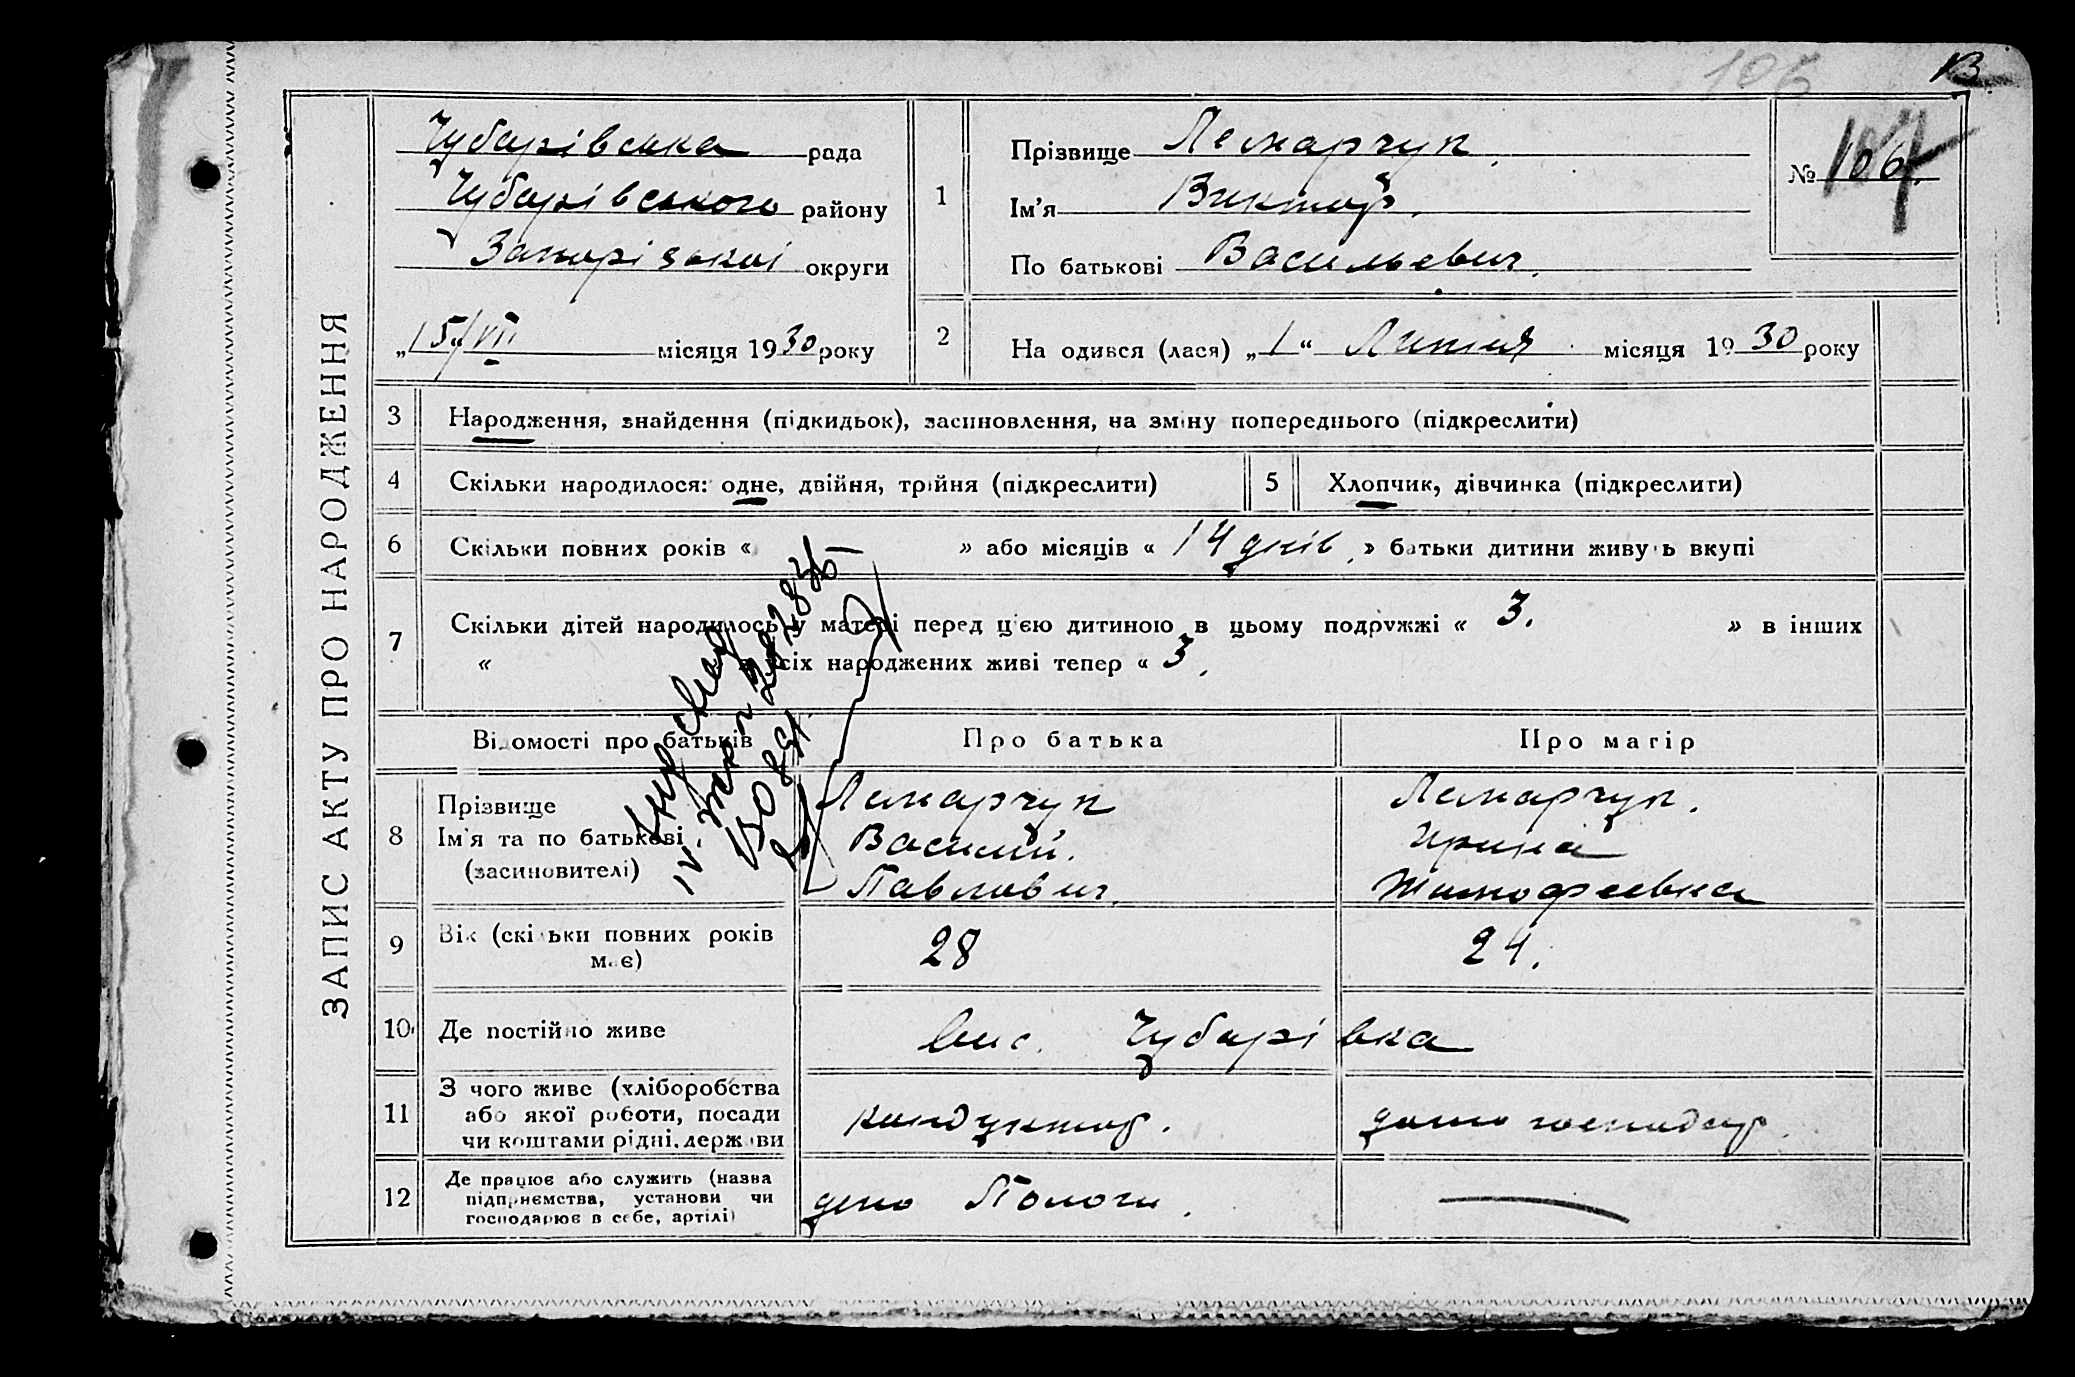 106
ЗАПИС АКТУ ПРО НАРОДЖЕННЯ
Чубарівська рада
Чубарівського району
Запорізької округи
„15“/VII місяця 1930 року
1
Прізвище Лемарчук
Ім’я Виктор.
По батькові Васильевич.
№ 106.
2
На одився (лася) „1“ Липня місяця 1930 року
3 Народження, знайдення (підкидьок), засиновлення, на зміну попереднього (підкреслити)
4 Скільки народилося: одне, двійня, трійня (підкреслити)
5 Хлопчик, дівчинка (підкреслити)
6 Скільки повних років « » або місяців « 14 днів. » батьки дитини живуть вкупі
7 Скільки дітей народилось у матері перед цією дитиною в цьому подружжі « 3. » в інших
« сіх народжених живі тепер « 3.
Відомості про батьків
Про батька
Про матір
8 Прізвище
Ім’я та по батькові
(засиновителі)
Лемарчук
Василий.
Павлович.
Лемарчук.
Ирина
Тимофеевна
9 Вік (скільки повних років
має)
28
24.
10 Де постійно живе
Чубарівка
11 З чого живе (хліборобства
або якої роботи, посади
чи коштами рідні, держави
кондуктор.
домогосподар.
12 Де працює або служить (назва
підприємства, установи чи
господарює в себе, артілі)
депо Пологи.